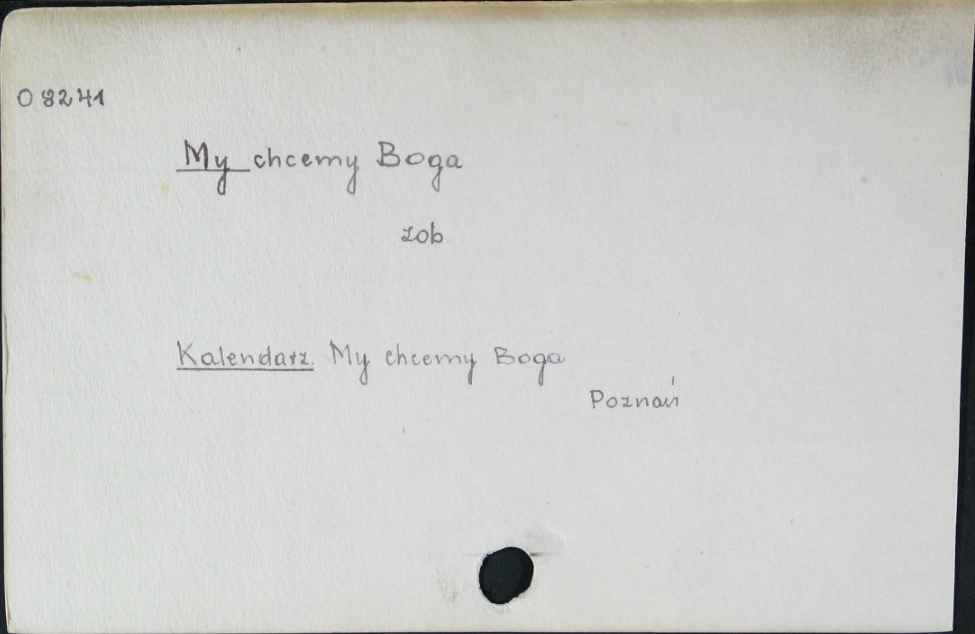 O 8241
My chcemy Boga
zob
Kalendarz. My chcemy Boga
Poznań